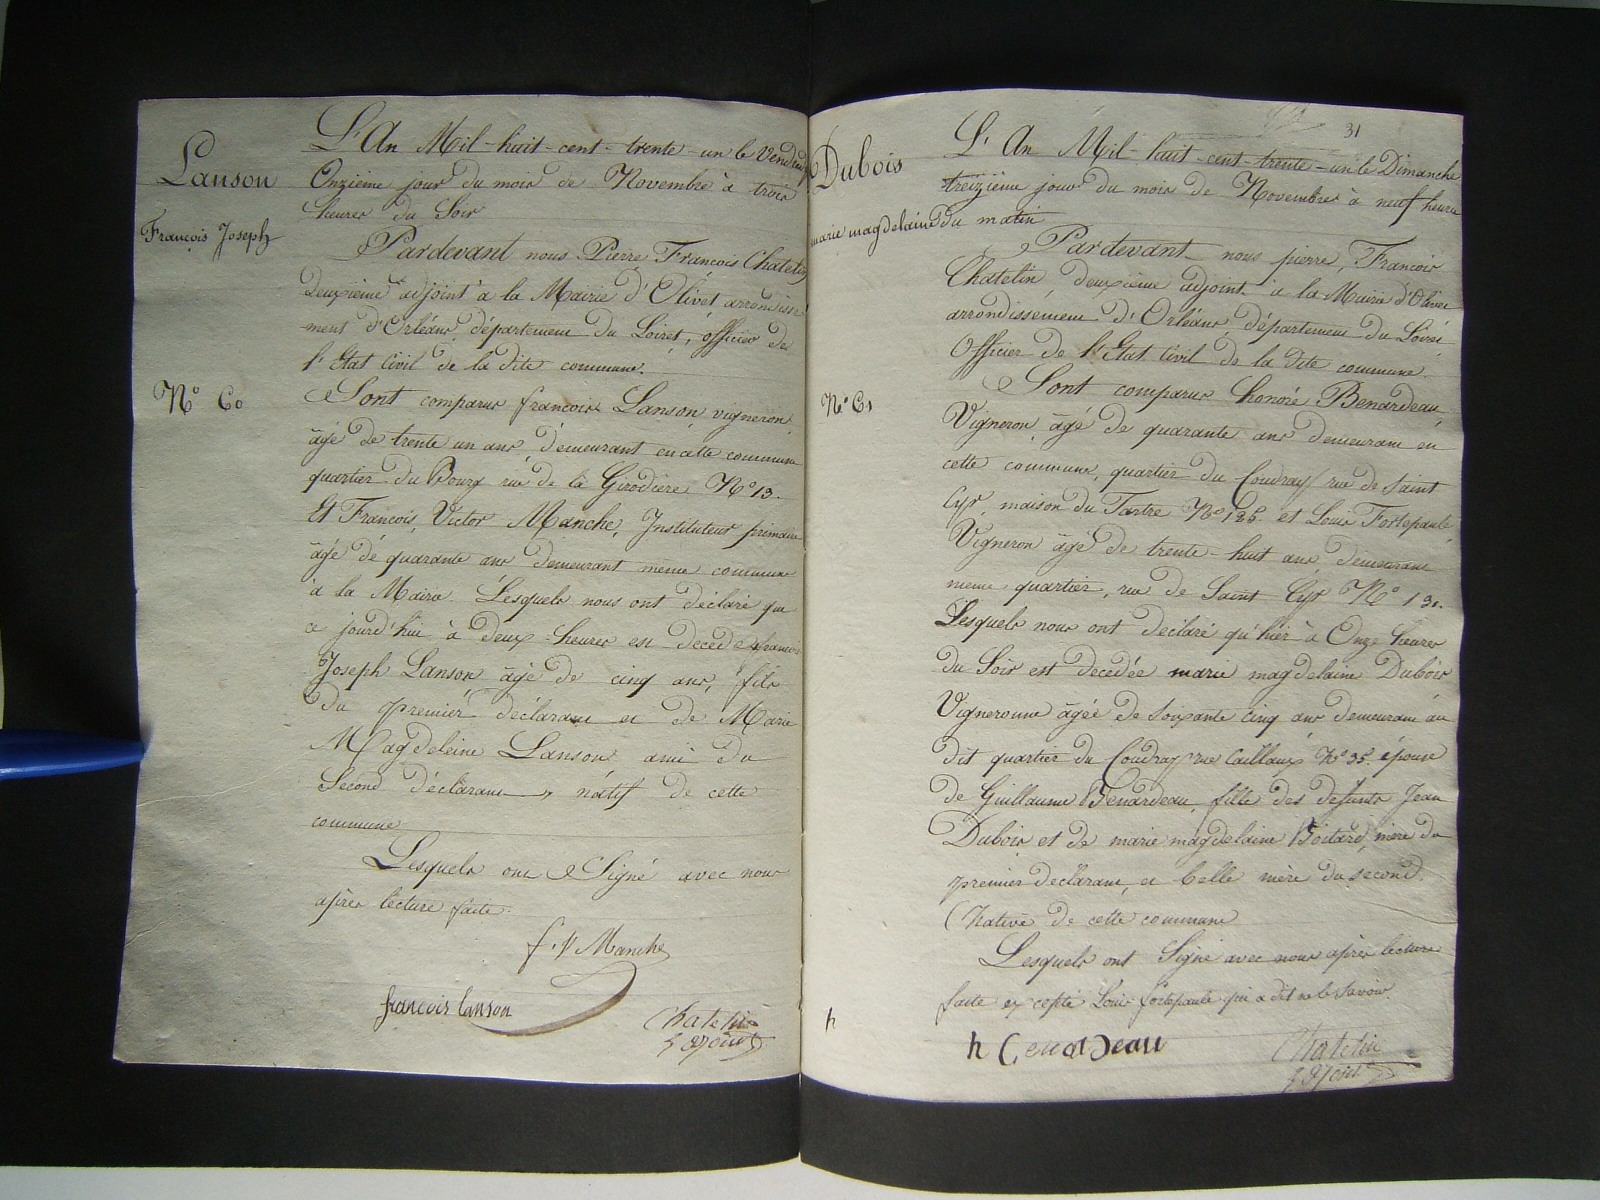 Lanson
François Joseph
N° 60
L'An Mil-huit-cent-trente-un le Vendredi
Onzième jour du mois de Novembre à trois
heures du Soir
Pardevant nous Pierre François Chatelin
deuxième adjoint à la Mairie d'Olivet arrondisse-
ment d'Orléans département du Loiret, officier de
l'Etat Civil de la dite commune.
Sont comparus françois Lanson vigneron
âgé de trente un ans demeurant en cette commune
quartier du Bourg rue de la Girodière N° 13.
Et François Victor Manche, Instituteur primaire
âgé de quarante ans demeurant même commune
à la Mairie. Lesquels nous ont déclaré que
ce jourd'hui à deux heures est décédé francois
Joseph Lanson âgé de cinq ans, fils
du premier déclarant et de Marie
Magdeleine Lanson ami du
Second déclarant, nâtif de cette
commune
Lesquels ont Signé avec nous
après lecture faite.
f. V Manche
françois lanson
Chatelin
adjoint
31
Dubois
marie magdelaine
N° 61
L'An Mil-huit-cent-trente-un le Dimanche
treizième jour du mois de Novembre à neuf heures
du matin
Pardevant nous pierre, François
Chatelin, deuxième adjoint à la Mairie d'Olivet
arrondissement d'Orléans département du Loiret
Officier de l'Etat Civil de la dite commune.
Sont comparus honoré Benardeau
Vigneron âgé de quarante ans demeurant en
cette commune, quartier du Coudray rue de Saint
Cyr, maison du Tartre N° et Louis Fortepaule
Vigneron âgé de trente-huit ans, demeurant
meme quartier, rue de Saint Cyr N° 131.
Lesquels nous ont déclaré qu'hier à Onze heures
du Soir est decedée marie magdelaine Dubois
Vigneronne âgée de soixante cinq ans demeurant au
dit quartier du Coudray rue Caillaux N° 35. épouse
de Guillaume Benardeau, fille des defunts Jean
Dubois et de marie magdelaine Boitard, mère du
premier declarant et belle mère du second.
Native de cette commune
Lesquels ont Signé avec nous après lecture
faite excepté Louis fortepaule qui a dit ne le Savoir.
h
h Benardeau
Chatelin
adjoint